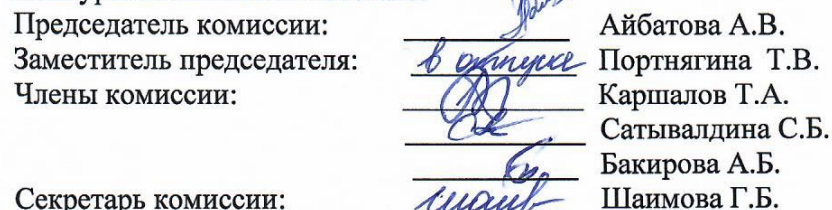 Председатель комиссии: Айбатова А.В.
Заместитель председателя: в отпуске Портнягина Т.В.
Члены комиссии: Каршалов Т.А.
Сатывалдина С.Б.
Бакирова А.Б.
Секретарь комиссии: Шаимова Г.Б.